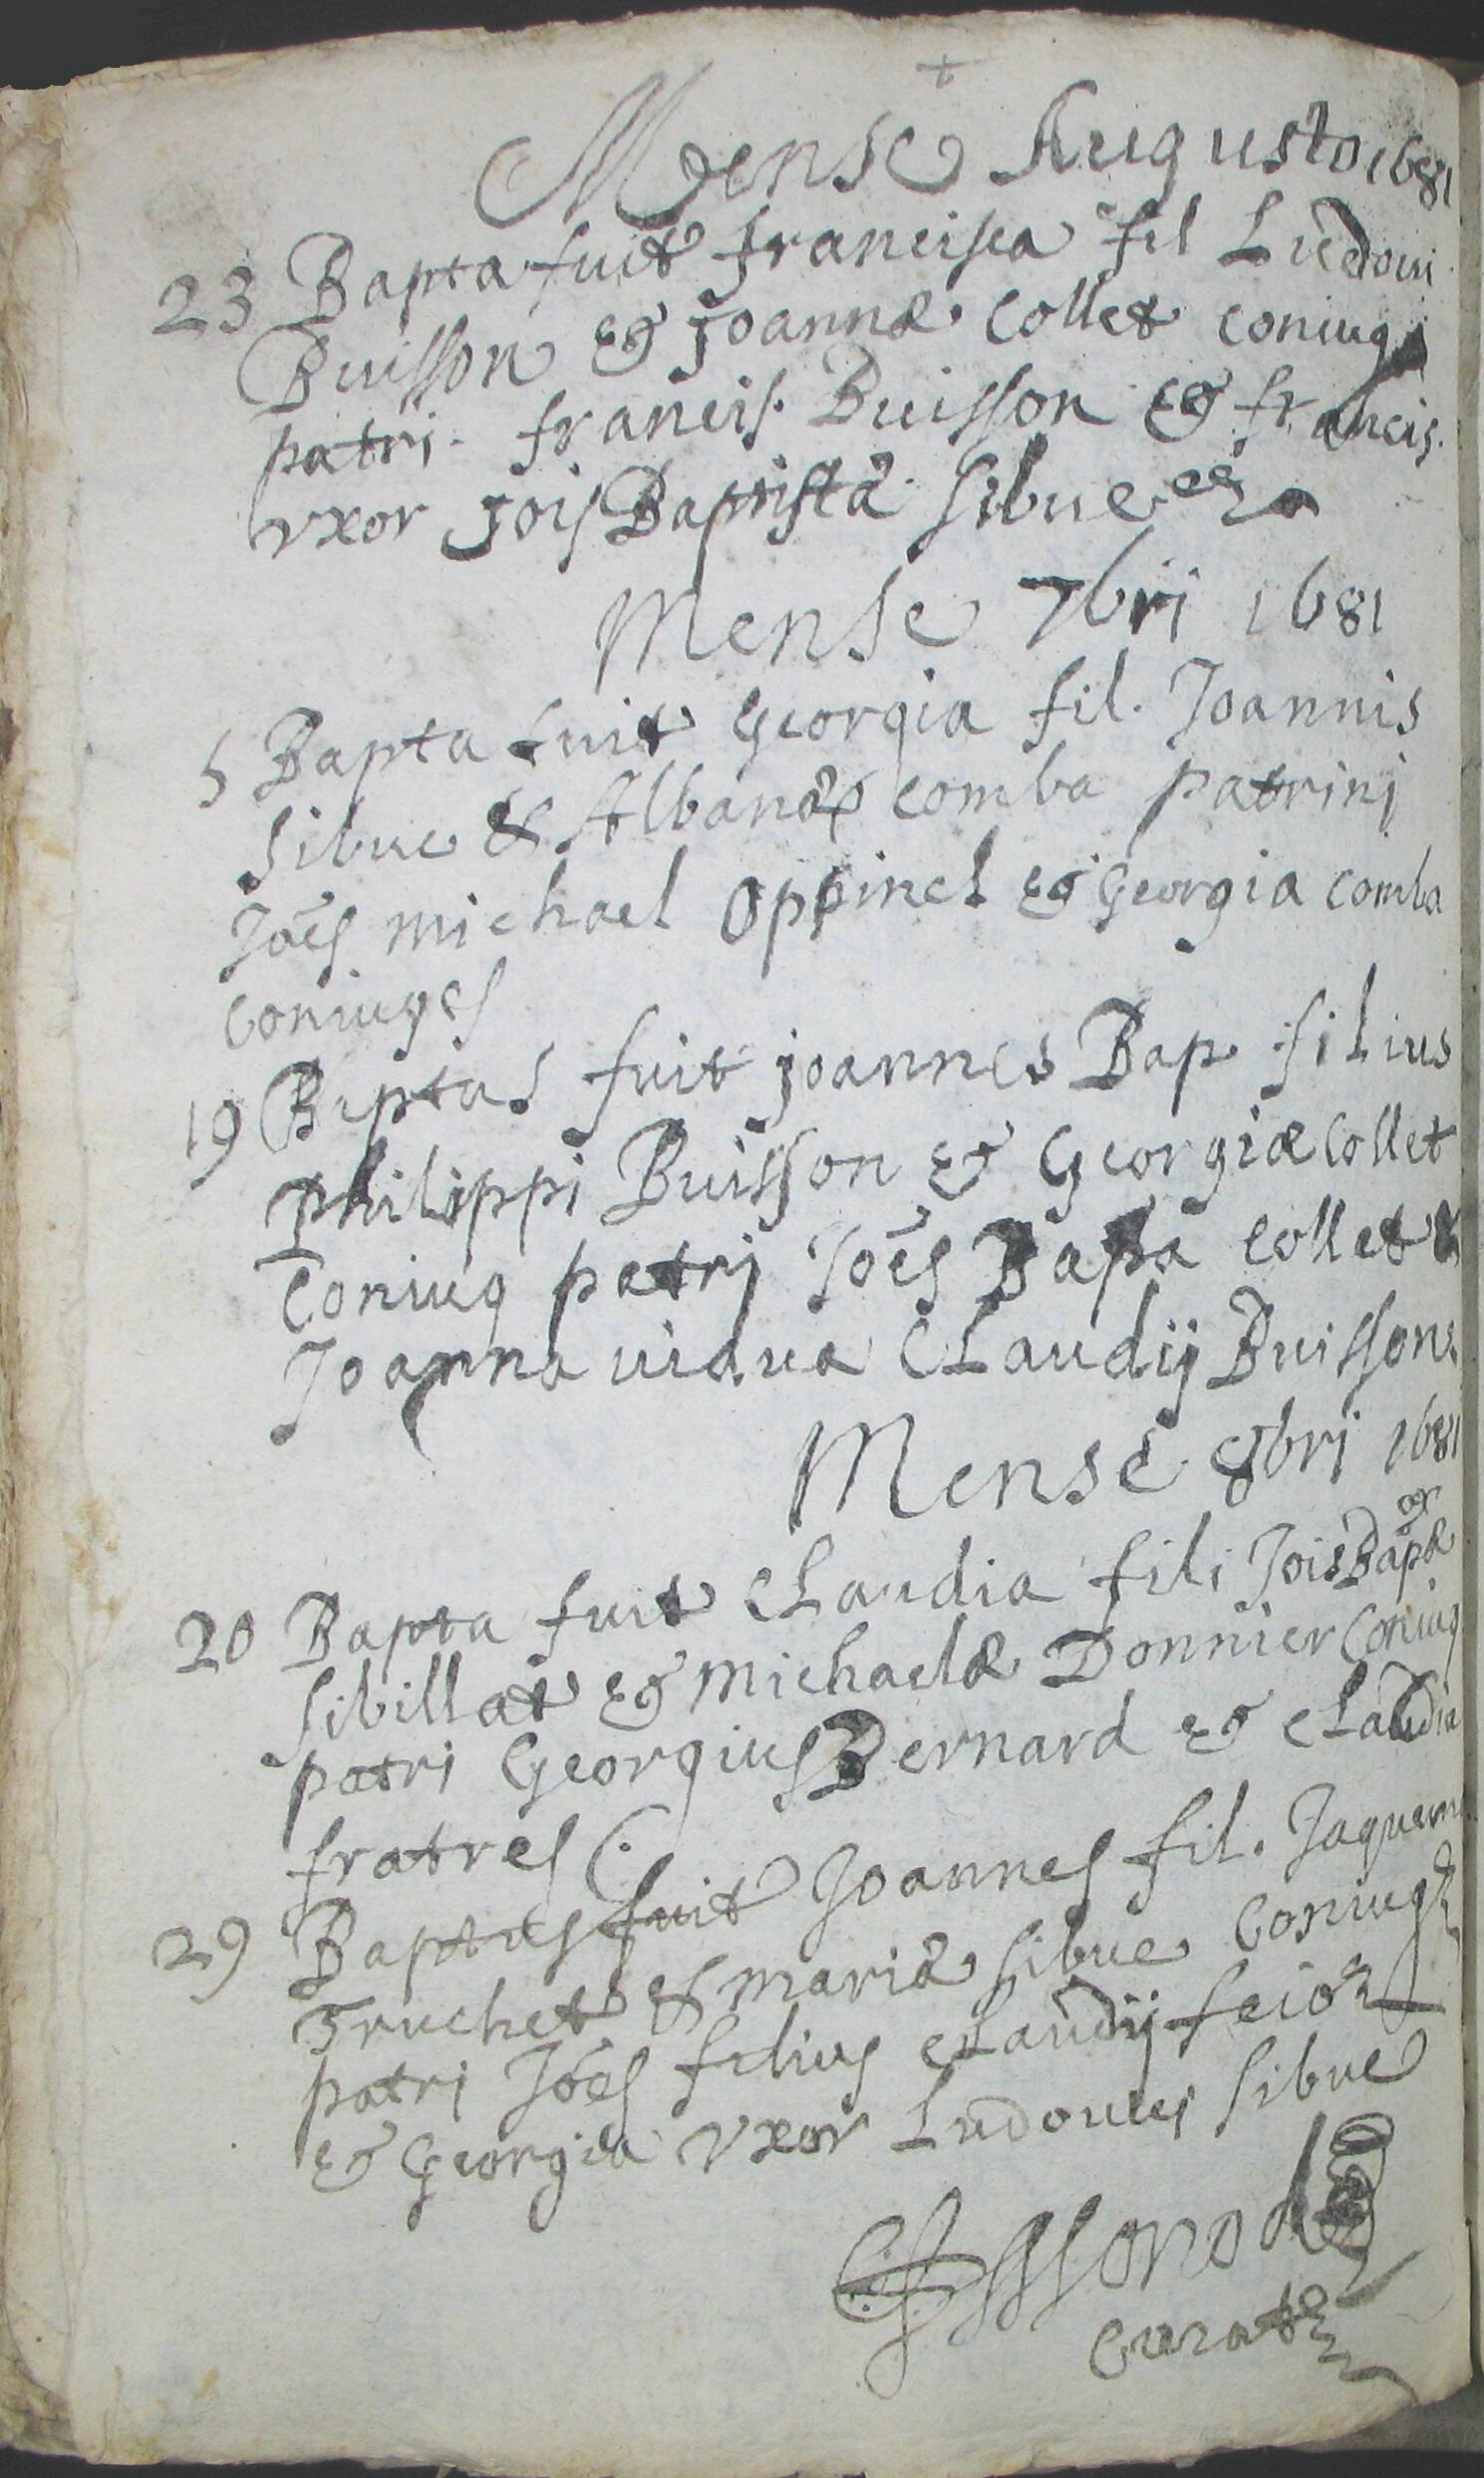 Mense Augusto 1681
23 Bapta fuit francisca fil Ludovi
Buisson & Joannæ Collet coniug
patri. francis. Buisson & francis.
vxor Jois Baptistæ Sibue
Mense 7bri 1681
5 Bapta fuit Georgia fil. Joannis
Sibue & Albanæ comba patrinj
Joēs michael Oppinel & Georgia comba
Coniuges
19 Baptus fuit joannes Bap filius
philippi Buisson & Georgiæ Collet
Coniug patrj Joēs Bapta Collet &
Joanna uidua Claudij Buisson.
Mense 8bri 1681
20 Bapta fuit Claudia fili Jois Bapæ
Sibillat & michaelæ Donnier Coniug
patri Georgius Bernard & Claudia
fratres
29 Baptus fuit Joannes fil. Jaquem
Truchet & mariæ Sibue Coniug
patrj Joēs filius Claudij
& Georgia vxor Ludovici Sibue
Curat